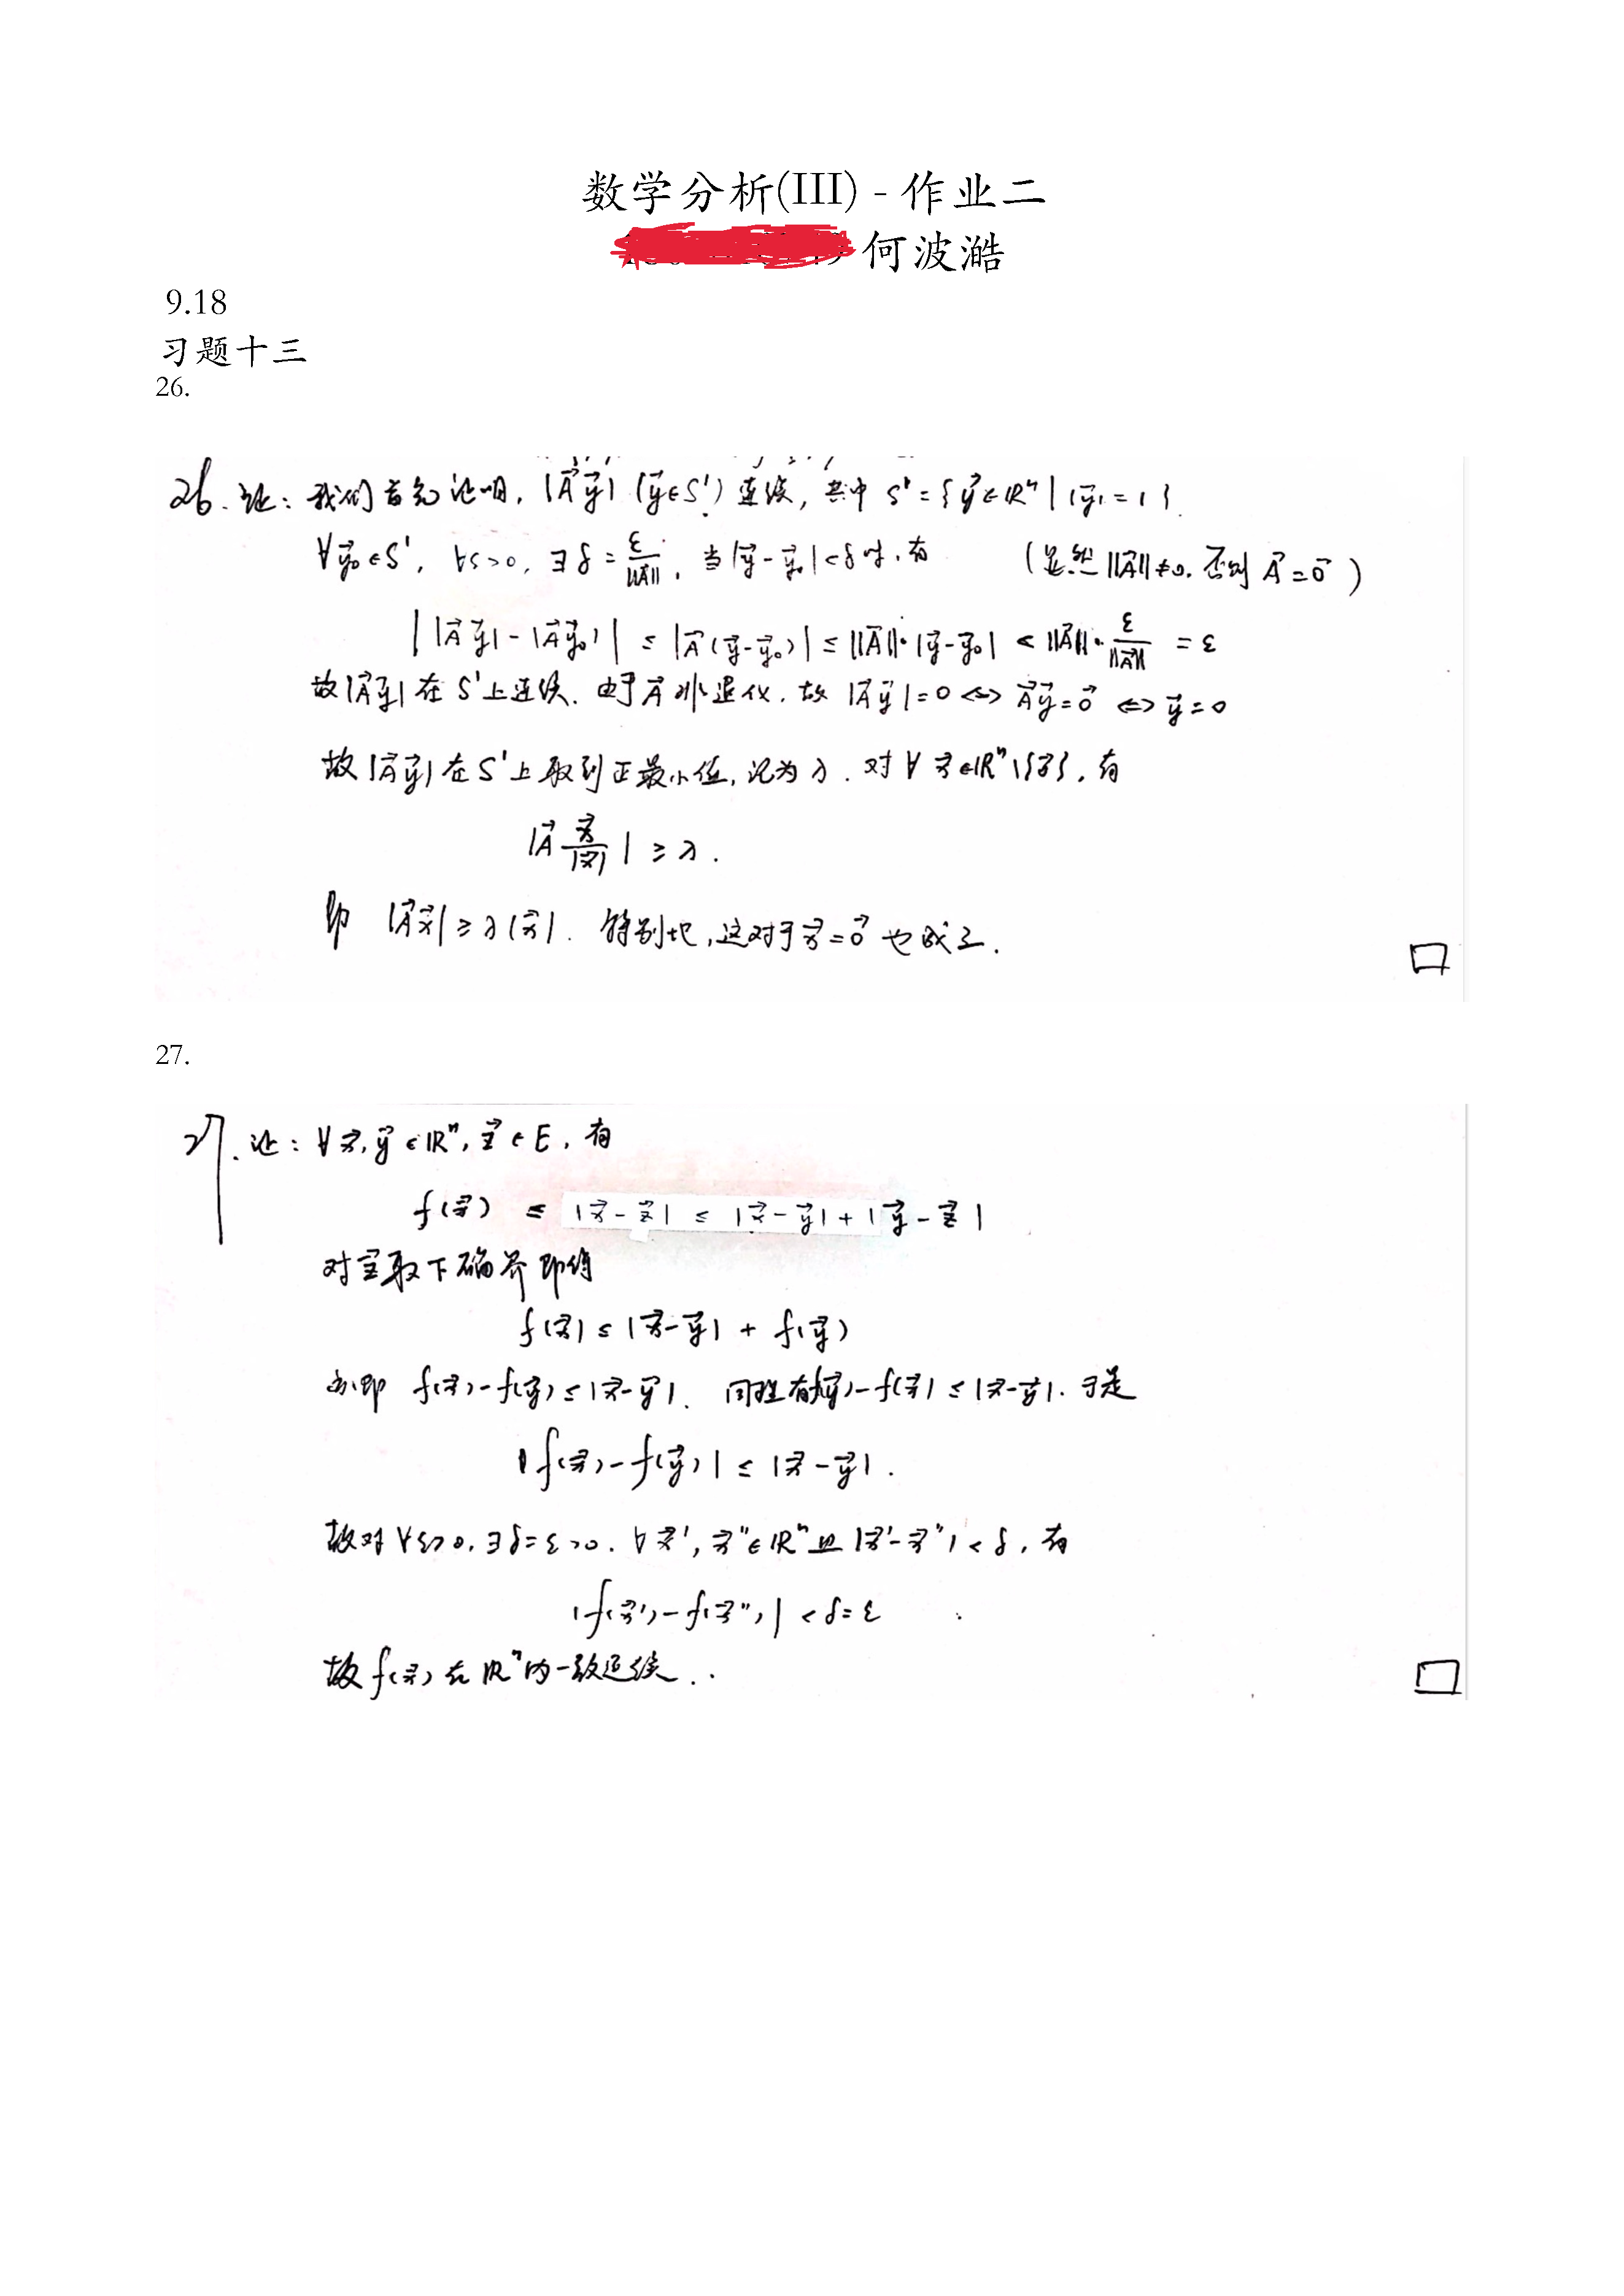 数学分析(III) - 作业二
何波澔
9.18
习题十三
26.
26. 证: 我们首先证明, |A⃗y⃗| (y⃗∈S') 连续, 其中 S' = {y⃗∈ℝⁿ | |y⃗| = 1}.
∀y⃗₀∈S', ∀ε>0, ∃δ = ε/‖A⃗‖, 当|y⃗-y⃗₀|<δ时, 有 (显然‖A⃗‖≠0, 否则 A⃗=0⃗)
| |A⃗y⃗| - |A⃗y⃗₀| | ≤ |A⃗(y⃗-y⃗₀)| ≤ ‖A⃗‖·|y⃗-y⃗₀| < ‖A⃗‖·ε/‖A⃗‖ = ε
故|A⃗y⃗|在S'上连续. 由于A⃗非退化, 故 |A⃗y⃗|=0 ⇔ A⃗y⃗=0⃗ ⇔ y⃗=0
故|A⃗y⃗|在S'上取到正最小值, 记为λ. 对∀x⃗∈ℝⁿ\{0⃗}, 有
|A⃗ x⃗/|x⃗| | ≥ λ.
即 |A⃗x⃗| ≥ λ|x⃗|. 特别地, 这对于x⃗=0⃗也成立.
□
27.
27. 证: ∀x⃗, y⃗∈ℝⁿ, z⃗∈E, 有
f(x⃗) ≤ |x⃗-z⃗| ≤ |x⃗-y⃗|+|y⃗-z⃗|
对z⃗取下确界即得
f(x⃗) ≤ |x⃗-y⃗| + f(y⃗)
亦即 f(x⃗)-f(y⃗) ≤ |x⃗-y⃗|. 同理有f(y⃗)-f(x⃗) ≤ |x⃗-y⃗|. 于是
|f(x⃗)-f(y⃗)| ≤ |x⃗-y⃗|.
故对∀ε>0, ∃δ=ε>0. ∀x⃗', x⃗''∈ℝⁿ且|x⃗'-x⃗''|<δ, 有
|f(x⃗')-f(x⃗'')| < δ=ε
故f(x⃗)在ℝⁿ内一致连续.
□